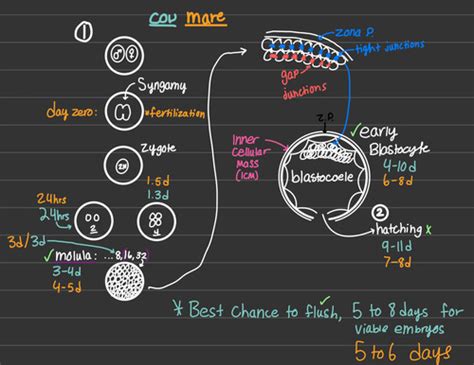 cow mare
①
♂ ♀
Syngamy
day zero: *fertilization
zygote
2N
1.5d
1.3d
24hrs
24hrs
2
4
3d/3d
✓molula: ...8,16,32
3-4d
4-5d
zona P.
tight junctions
gap
junctions
Z.P.
✓early
Blastocyte
4-10d
6-8d
Inner
Cellular
Mass
(ICM)
blastocoele
②
hatching x
9-11d
7-8d
* Best Chance to flush, ✓ 5 to 8 days for
viable embryos
5 to 6 days